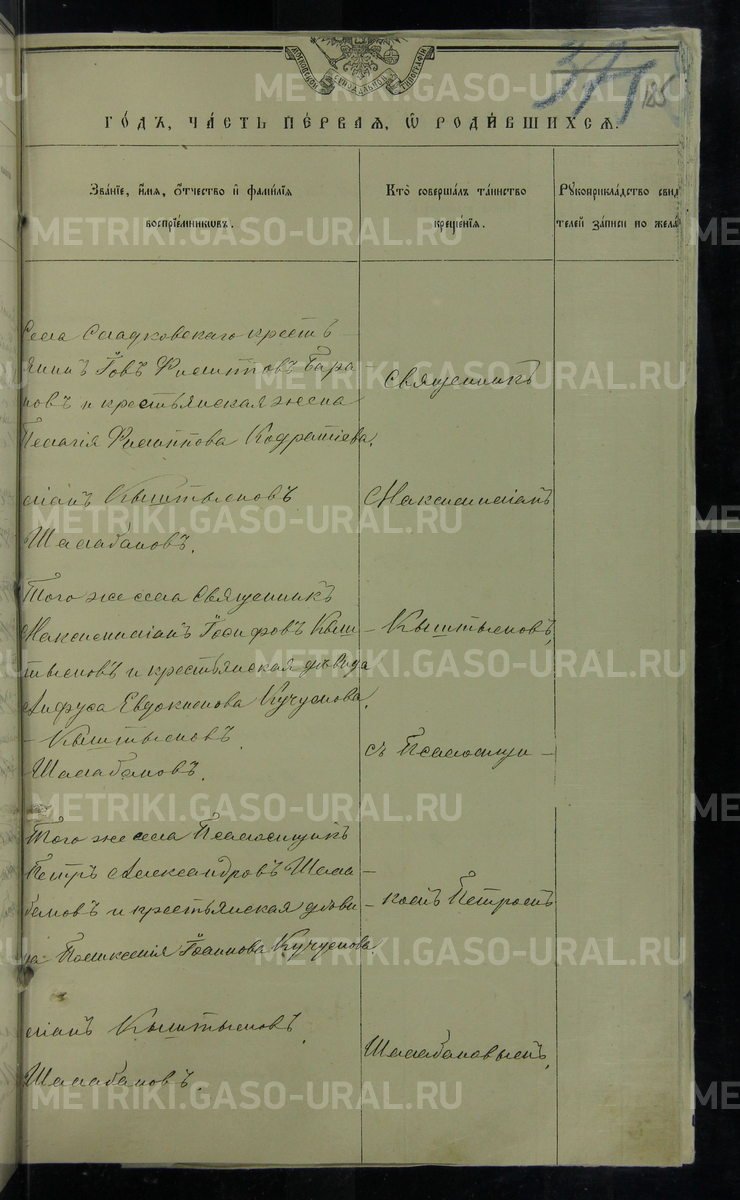 МОСКОВСКОЙ СѴНОДАЛЬНОЙ ТИПОГРАФІИ
185
ГО́ДЪ, ЧА́СТЬ ПЕ́РВАѦ, Ѡ҆ РОДИ́ВШИХСѦ.
Зва́нїе, и҆́мѧ, ѻ҆́тчество и҆ фами́лїѧ
воспрїе́мникѡвъ.
Кто̀ соверша́лъ та́инство
креще́нїѧ.
Рꙋкоприкла́дство свид
телей за́писи по жела́
Села Сладковскаго кресть-
янинъ Іовъ Филипповъ Бара-
новъ и крестьянская жена
Пелагія Филиппова Кодратіева.
Священникъ
ліанъ Кыштымовъ
Шалабановъ.
Максимиліанъ
Того же села Священникъ
Максимиліанъ Іосифовъ Кыш-
тымовъ и крестьянская дѣвица
Анфуса Евдокимова Кучумова.
Кыштымовъ,
- Кыштымовъ
Шалабановъ.
съ Псаломщи-
Того же села Псаломщикъ
Петръ Александровъ Шала-
бановъ и крестьянская дѣви-
ца Поликсенія Іоаннова Кучумова.
комъ Петромъ
ліанъ Кыштымовъ,
Шалабановъ.
Шалабановымъ,
METRIKI.GASO-URAL.RU